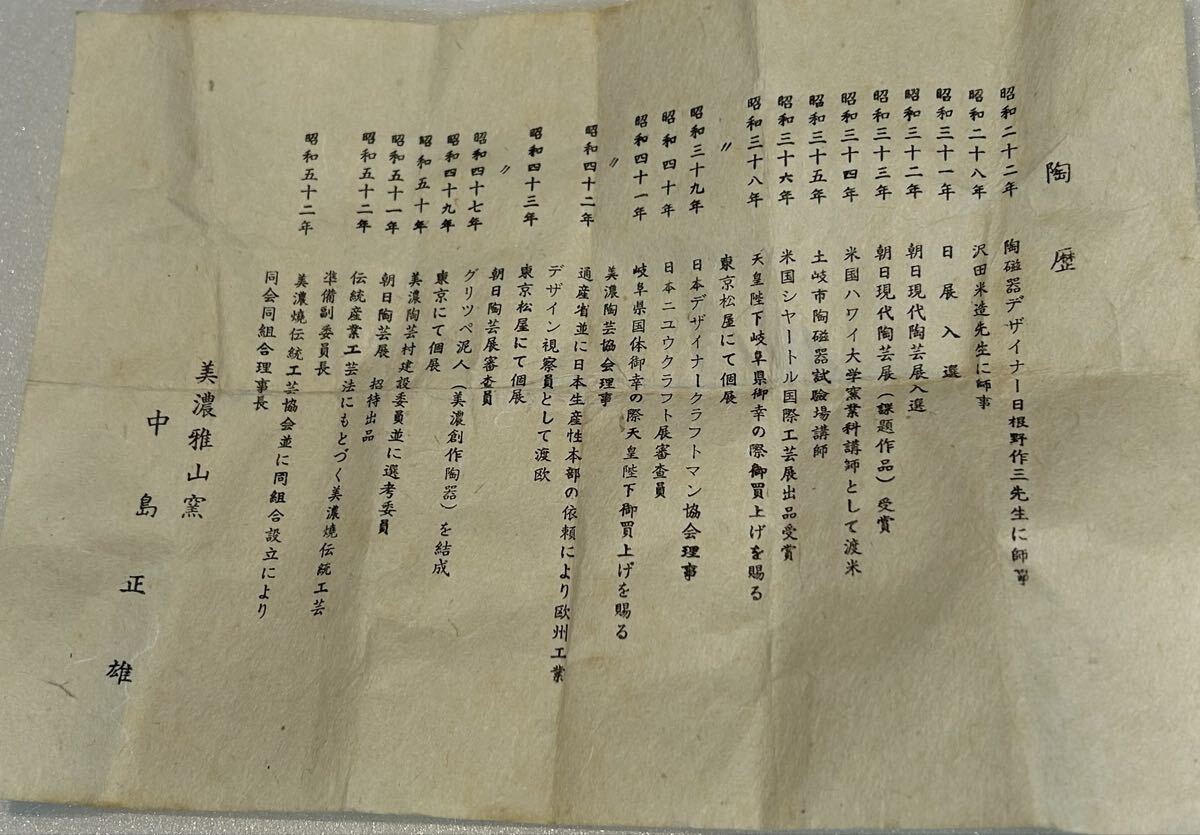 陶歴
昭和二十二年 陶磁器デザイナー日根野作三先生に師事
昭和二十八年 沢田米造先生に師事
昭和三十一年 日展入選
昭和三十二年 朝日現代陶芸展入選
昭和三十三年 朝日現代陶芸展（課題作品）受賞
昭和三十四年 米国ハワイ大学窯業科講師として渡米
昭和三十五年 土岐市陶磁器試験場講師
昭和三十六年 米国シヤートル国際工芸展出品受賞
昭和三十八年 天皇陛下岐阜県御幸の際御買上げを賜る
〃 東京松屋にて個展
昭和三十九年 日本デザイナークラフトマン協会理事
昭和四十年 日本ニユウクラフト展審査員
昭和四十一年 岐阜県国体御幸の際天皇陛下御買上げを賜る
〃 美濃陶芸協会理事
昭和四十二年 通産省並に日本生産性本部の依頼により欧州工業
デザイン視察員として渡欧
昭和四十三年 東京松屋にて個展
〃 朝日陶芸展審査員
昭和四十七年 グリツペ泥人（美濃創作陶器）を結成
昭和四十九年 東京にて個展
昭和五十年 美濃陶芸村建設委員並に選考委員
昭和五十一年 朝日陶芸展 招待出品
昭和五十二年 伝統産業工芸法にもとづく美濃焼伝統工芸
準備副委員長
昭和五十二年 美濃焼伝統工芸協会並に同組合設立により
同会同組合理事長
美濃雅山窯
中島正雄